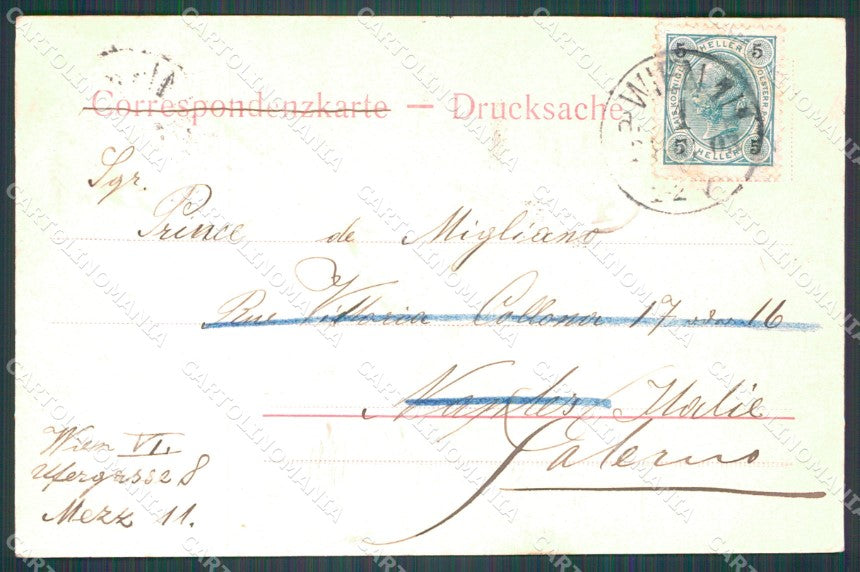 Correspondenzkarte — Drucksache
5 HELLER 5
5 HELLER 5
WIEN
Sgr.
Prince de Migliano
Rue Vittoria Collona 17 oder 16
Naples / Italie
Salerno
Wien VI.
Ufergasse 8
Mezz 11.
CARTOLINOMANIA